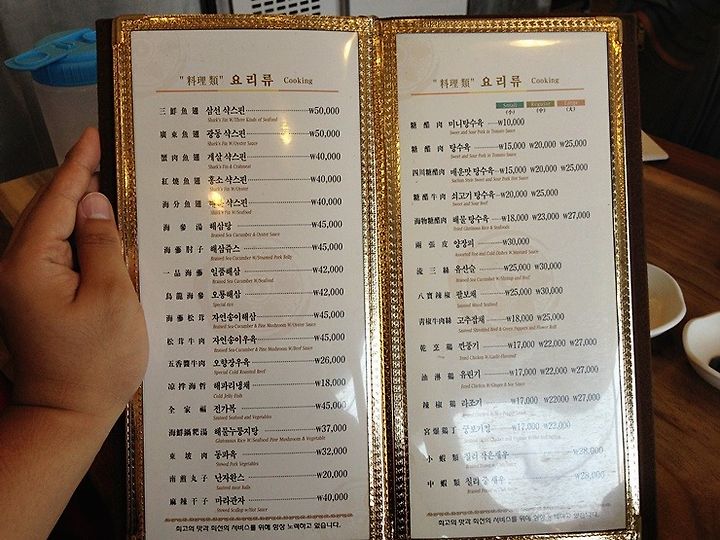 "料理類" 요리류 Cooking
三鮮魚翅 삼선 샥스핀 ₩50,000
Shark's Fin W/Three Kinds of Seafood
廣東魚翅 광동 샥스핀 ₩50,000
Shark's Fin W/Oyster Sauce
蟹肉魚翅 게살 샥스핀 ₩40,000
Shark's Fin & Crabmeat
紅燒魚翅 홍소 샥스핀 ₩40,000
Shark's Fin W/Oyster
海分魚翅 샥스핀 ₩40,000
Shark's Fin W/Seafood
海參湯 해삼탕 ₩45,000
Braised Sea Cucumber & Oyster Sauce
海蔘肘子 해삼쥬스 ₩45,000
Braised Sea Cucumber W/Steamed Pork Belly
一品海蔘 일품해삼 ₩42,000
Braised Sea Cucumber W/Seafood
烏龍海參 오룡해삼 ₩42,000
Special rice
海蔘松茸 자연송이해삼 ₩45,000
Braised Sea Cucumber & Pine Mushroom W/Oyster Sauce
松茸牛肉 자연송이우육 ₩45,000
Braised Sea Cucumber & Pine Mushroom W/Beef Sauce
五香醬牛肉 오향장우육 ₩26,000
Special Cold Roasted Beef
凉拌海哲 해파리냉채 ₩18,000
Cold Jelly Fish
全家福 전가복 ₩45,000
Sauteed Seafood and Vegetables
海鮮鍋粑湯 해물누룽지탕 ₩37,000
Glutonous Rice W/Seafood Pine Mushroom & Vegetable
東坡肉 동파육 ₩32,000
Stewed Pork Vegetables
南煎丸子 난자완스 ₩20,000
Sauteed meat Balls
麻辣干子 마라관자 ₩40,000
Steamed Scallop w/Hot Sauce
최고의 맛과 최선의 서비스를 위해 항상 노력하고 있습니다.
"料理類" 요리류 Cooking
Small Regular Large
(小) (中) (大)
糖醋肉 미니탕수육 ₩10,000
Sweet and Sour Pork in Tomato Sauce
糖醋肉 탕수육 ₩15,000 ₩20,000 ₩25,000
Sweet and Sour Pork in Tomato Sauce
四川糖醋肉 매운맛 탕수육 ₩15,000 ₩20,000 ₩25,000
Sachun Style Sweet and Sour Pork Hot Sauce
糖醋牛肉 쇠고기 탕수육 ₩20,000 ₩25,000
Sweet and Sour Beef
海物糖醋肉 해물 탕수육 ₩18,000 ₩23,000 ₩27,000
Fried Glutinous Rice & Seafoods
兩張皮 양장피 ₩30,000
Assorted Hot and Cold Dishes W/Mustard Sauce
流三絲 유산슬 ₩25,000 ₩30,000
Sauteed Sea Cucumber W/Shrimp and Beef
八寶辣椒 팔보채 ₩25,000 ₩30,000
Sauteed Mixed Seafood
靑椒牛肉絲 고추잡채 ₩18,000 ₩25,000
Sauteed Shredded Beef & Green Peppers and Flower Roll
乾烹鷄 깐풍기 ₩17,000 ₩22,000 ₩27,000
Fried Chicken W/Garlic Flavored
油淋鷄 유린기 ₩17,000 ₩22,000 ₩27,000
Fried Chicken W/Ginger & Soy Sauce
辣椒鷄 라조기 ₩17,000 ₩22000 ₩27,000
宮爆鷄丁 궁보기정 ₩17,000 ₩22,000
小蝦類 칠리 작은새우 ₩28,000
中蝦類 칠리 중 새우 ₩28,000
최고의 맛과 최선의 서비스를 위해 항상 노력하고 있습니다.